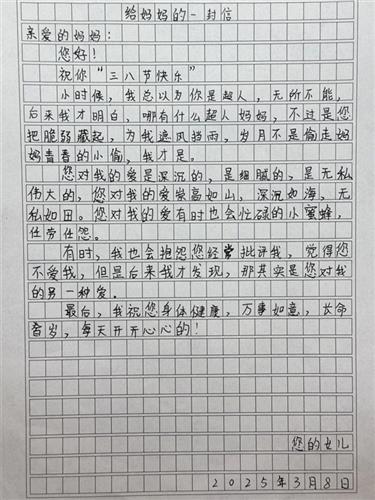 给妈妈的一封信
亲爱的妈妈:
您好!
祝你“三八节快乐”
小时候,我总以为你是超人,无所不能,
后来我才明白,哪有什么超人妈妈,不过是您
把脆弱藏起,为我遮风挡雨,岁月不是偷走妈
妈青春的小偷,我才是。
您对我的爱是深沉的,是细腻的,是无私
伟大的,您对我的爱崇高如山,深沉如海,无
私如田。您对我的爱有时也会忙碌的小蜜蜂,
任劳任怨。
有时,我也会抱怨您经常批评我,觉得您
不爱我,但是后来我才发现,那其实是您对我
的另一种爱。
最后,我祝您身体健康,万事如意,长命
百岁,每天开开心心的!
您的女儿
2025年3月8日